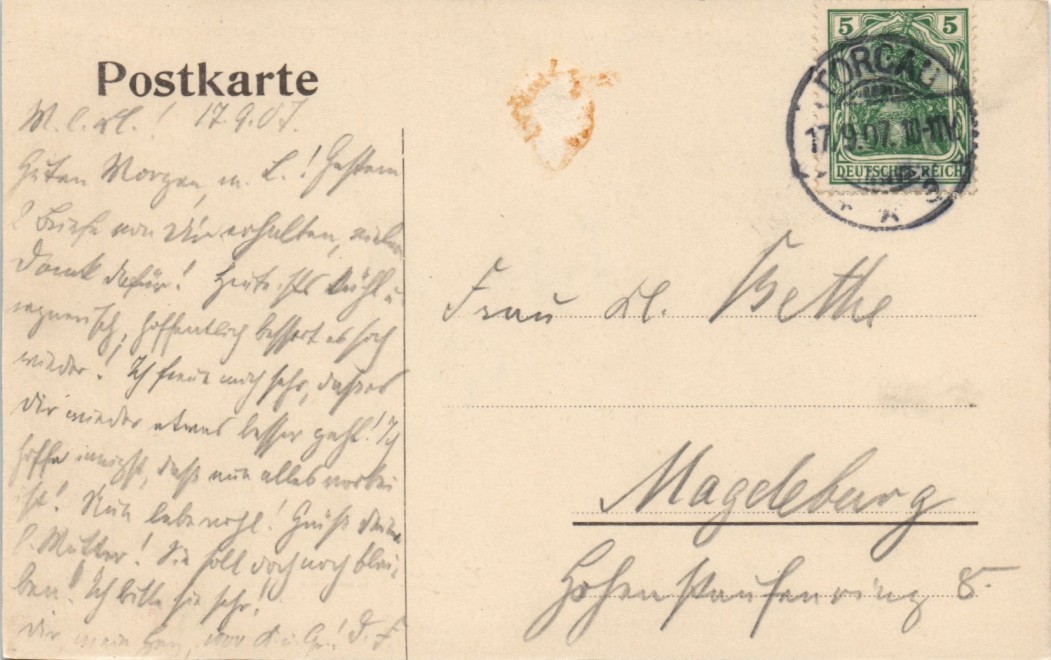 Postkarte
M. l. Kl.! 17.9.07.
Guten Morgen, m. L.! Gestern
2 Briefe von Dir erhalten, vielen
Dank dafür! Heute ists kühl u.
regnerisch, hoffentlich bessert es sich
wieder! Ich freue mich sehr, daß es
Dir wieder etwas besser geht! Ich
hoffe innigst, daß nun alles vorbei
ist! Nun lebewohl! Grüße Deine
l. Mutter! Sie soll doch noch blei-
ben! Ich bitte sie sehr!
Dir, mein
5 5
TORGAU
17.9.07. 10-11V.
DEUTSCHES REICH
Frau Kl. Bethe
Magdeburg
Hohenstaufenring 8.